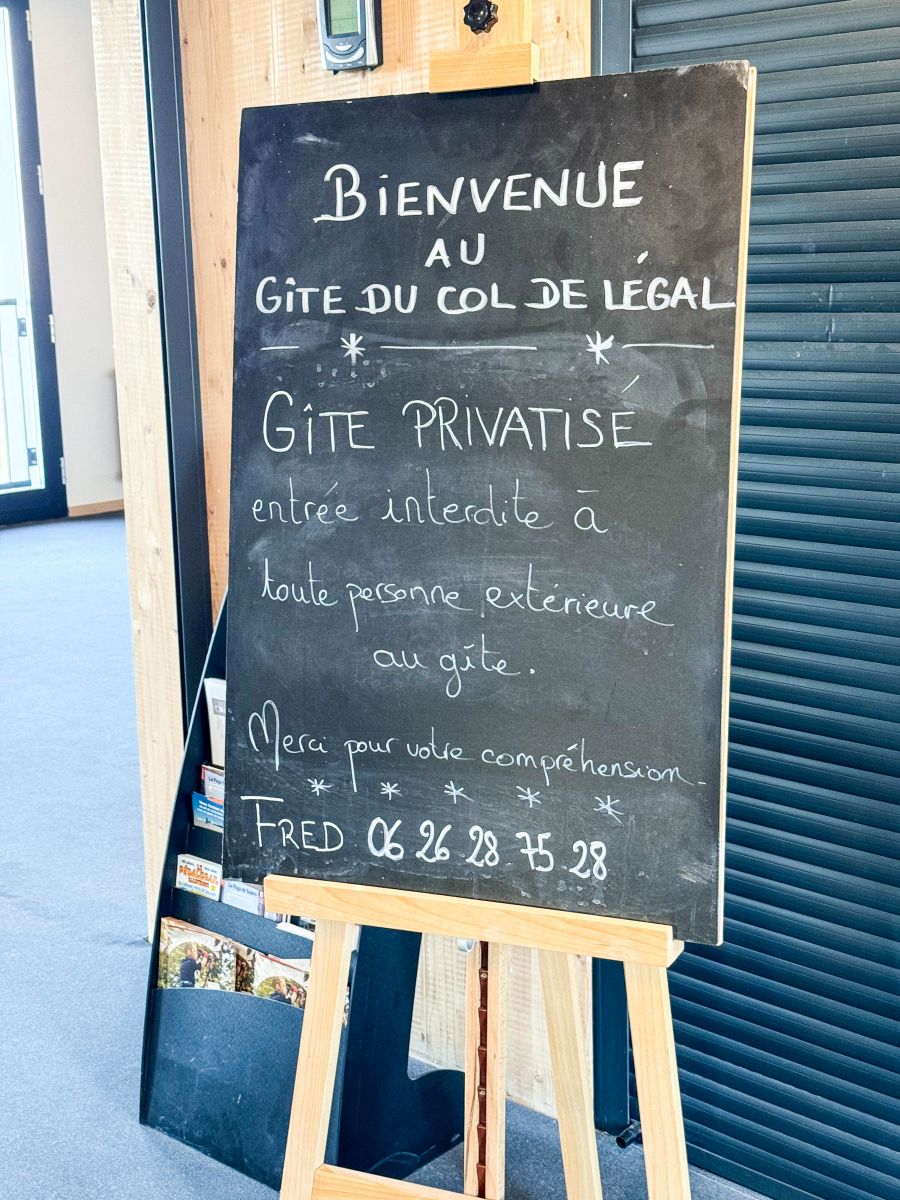 BIENVENUE
AU
GÎTE DU COL DE LÉGAL
GÎTE PRIVATISÉ
entrée interdite à
toute personne extérieure
au gîte.
Merci pour votre compréhension.
FRED 06 26 28 75 28